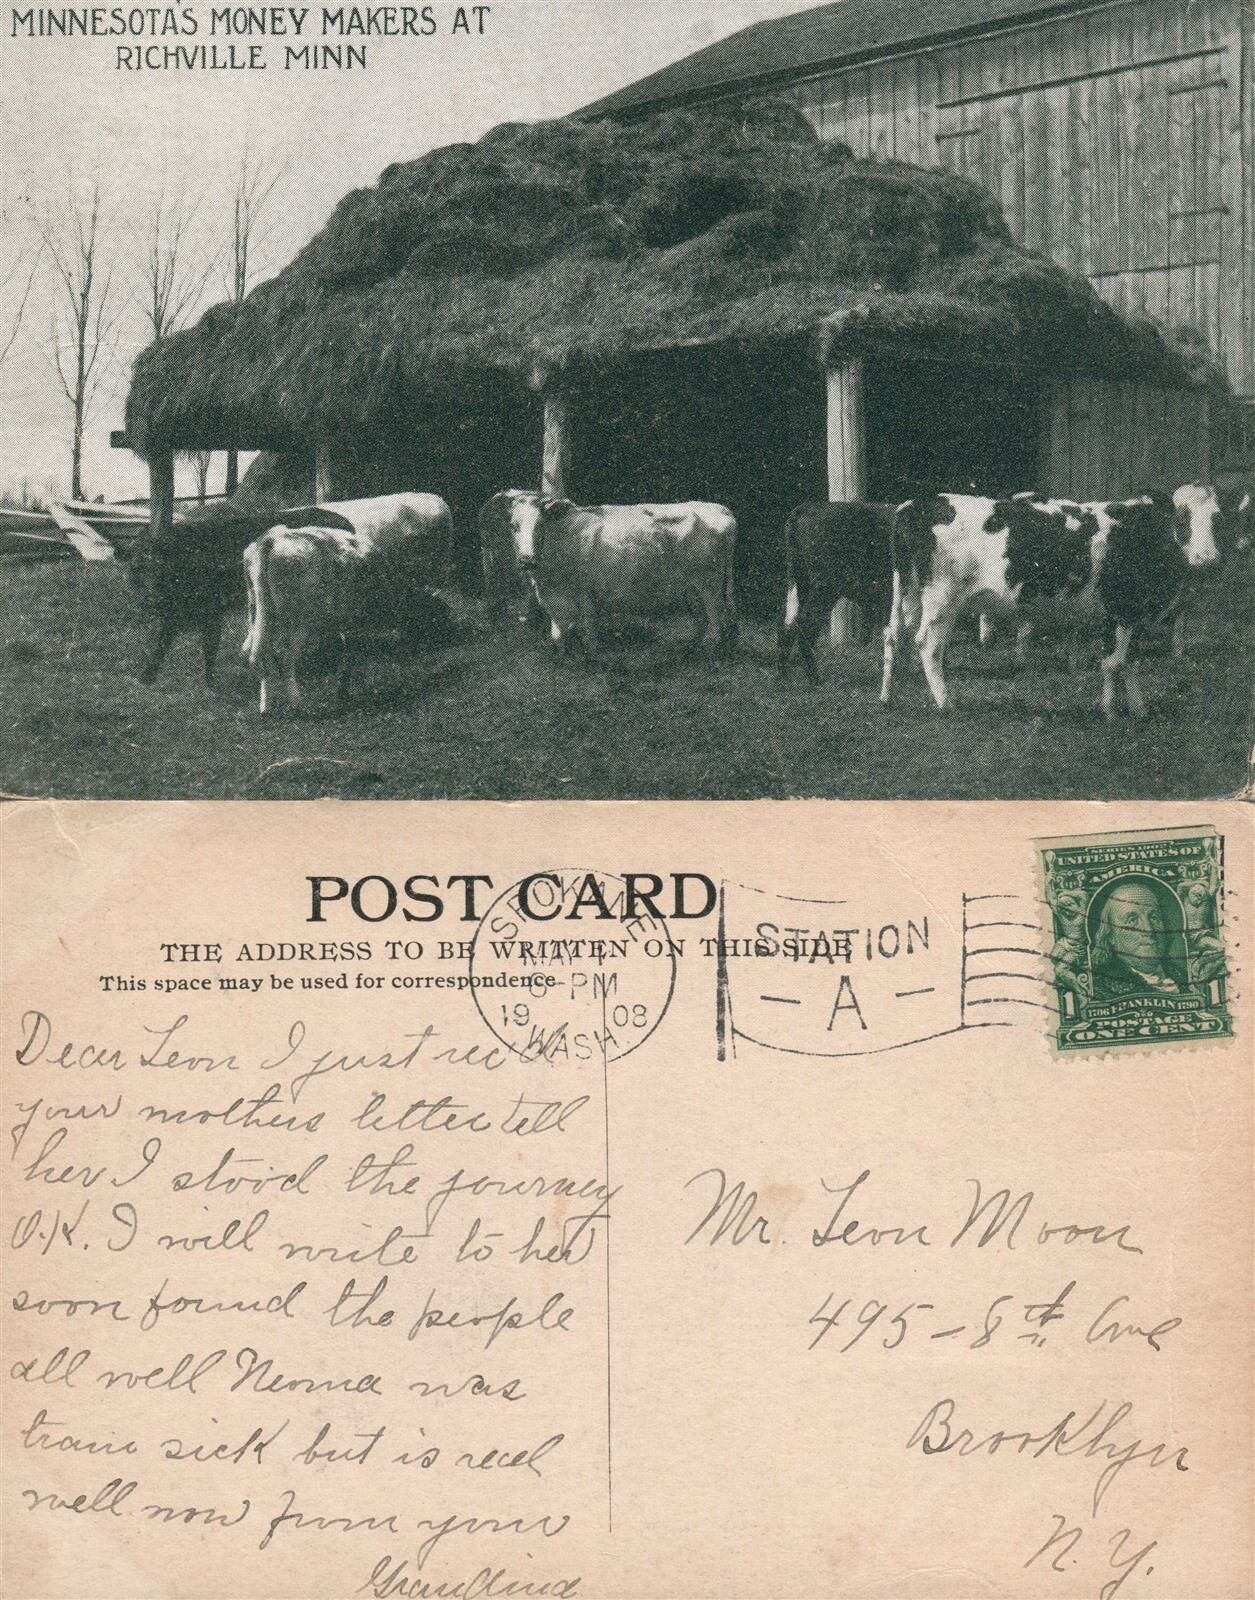 MINNESOTA'S MONEY MAKERS AT
RICHVILLE MINN
POST CARD
THE ADDRESS TO BE WRITTEN ON THIS SIDE
This space may be used for correspondence
SPOKANE
MAY
6-PM
1908
WASH.
STATION
A
SERIES 1902
UNITED STATES OF
AMERICA
1706 FRANKLIN 1790
1 1
POSTAGE
ONE CENT
Dear Leon I just rec'd
your mothers letter tell
her I stood the journey
O.K. I will write to her
soon found the people
all well Neoma was
train sick but is real
well now from your
Grandma
Mr. Leon Moon
495-8th Ave
Brooklyn
N.Y.